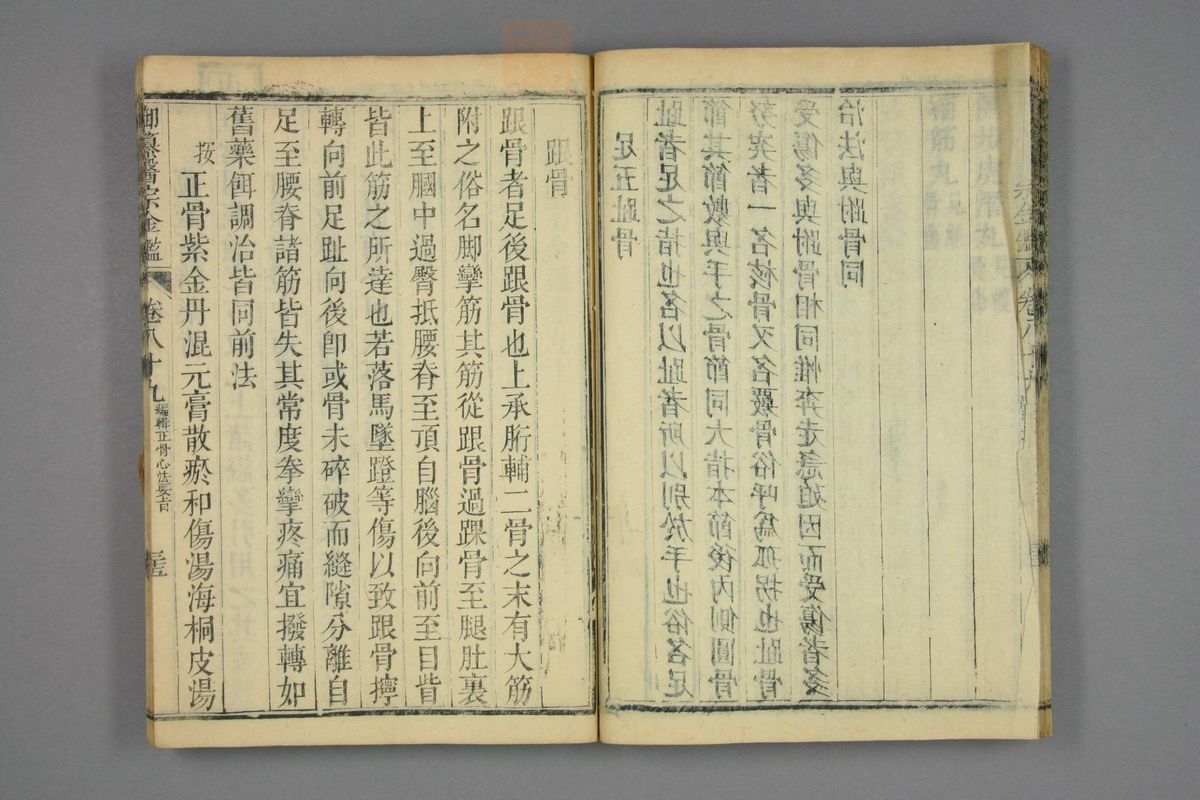 足五趾骨
趾者足之指也名以趾者所以别於手也俗名足
節其節數與手之骨節同大指本節後內側圓骨
努突者一名核骨又名覈骨俗呼爲孤拐也趾骨
受傷多與跗骨相同惟奔走急迫因而受傷者多
治法與跗骨同
跟骨
跟骨者足後跟骨也上承胻輔二骨之末有大筋
附之俗名脚攣筋其筋從跟骨過踝骨至腿肚裏
上至膕中過臀抵腰脊至頂自腦後向前至目眥
皆此筋之所達也若落馬墜蹬等傷以致跟骨擰
轉向前足趾向後卽或骨未碎破而縫隙分離自
足至腰脊諸筋皆失其常度拳攣疼痛宜撥轉如
舊藥餌調治皆同前法
按正骨紫金丹混元膏散瘀和傷湯海桐皮湯
御纂醫宗金鑑 卷八十九 編輯正骨心法要旨